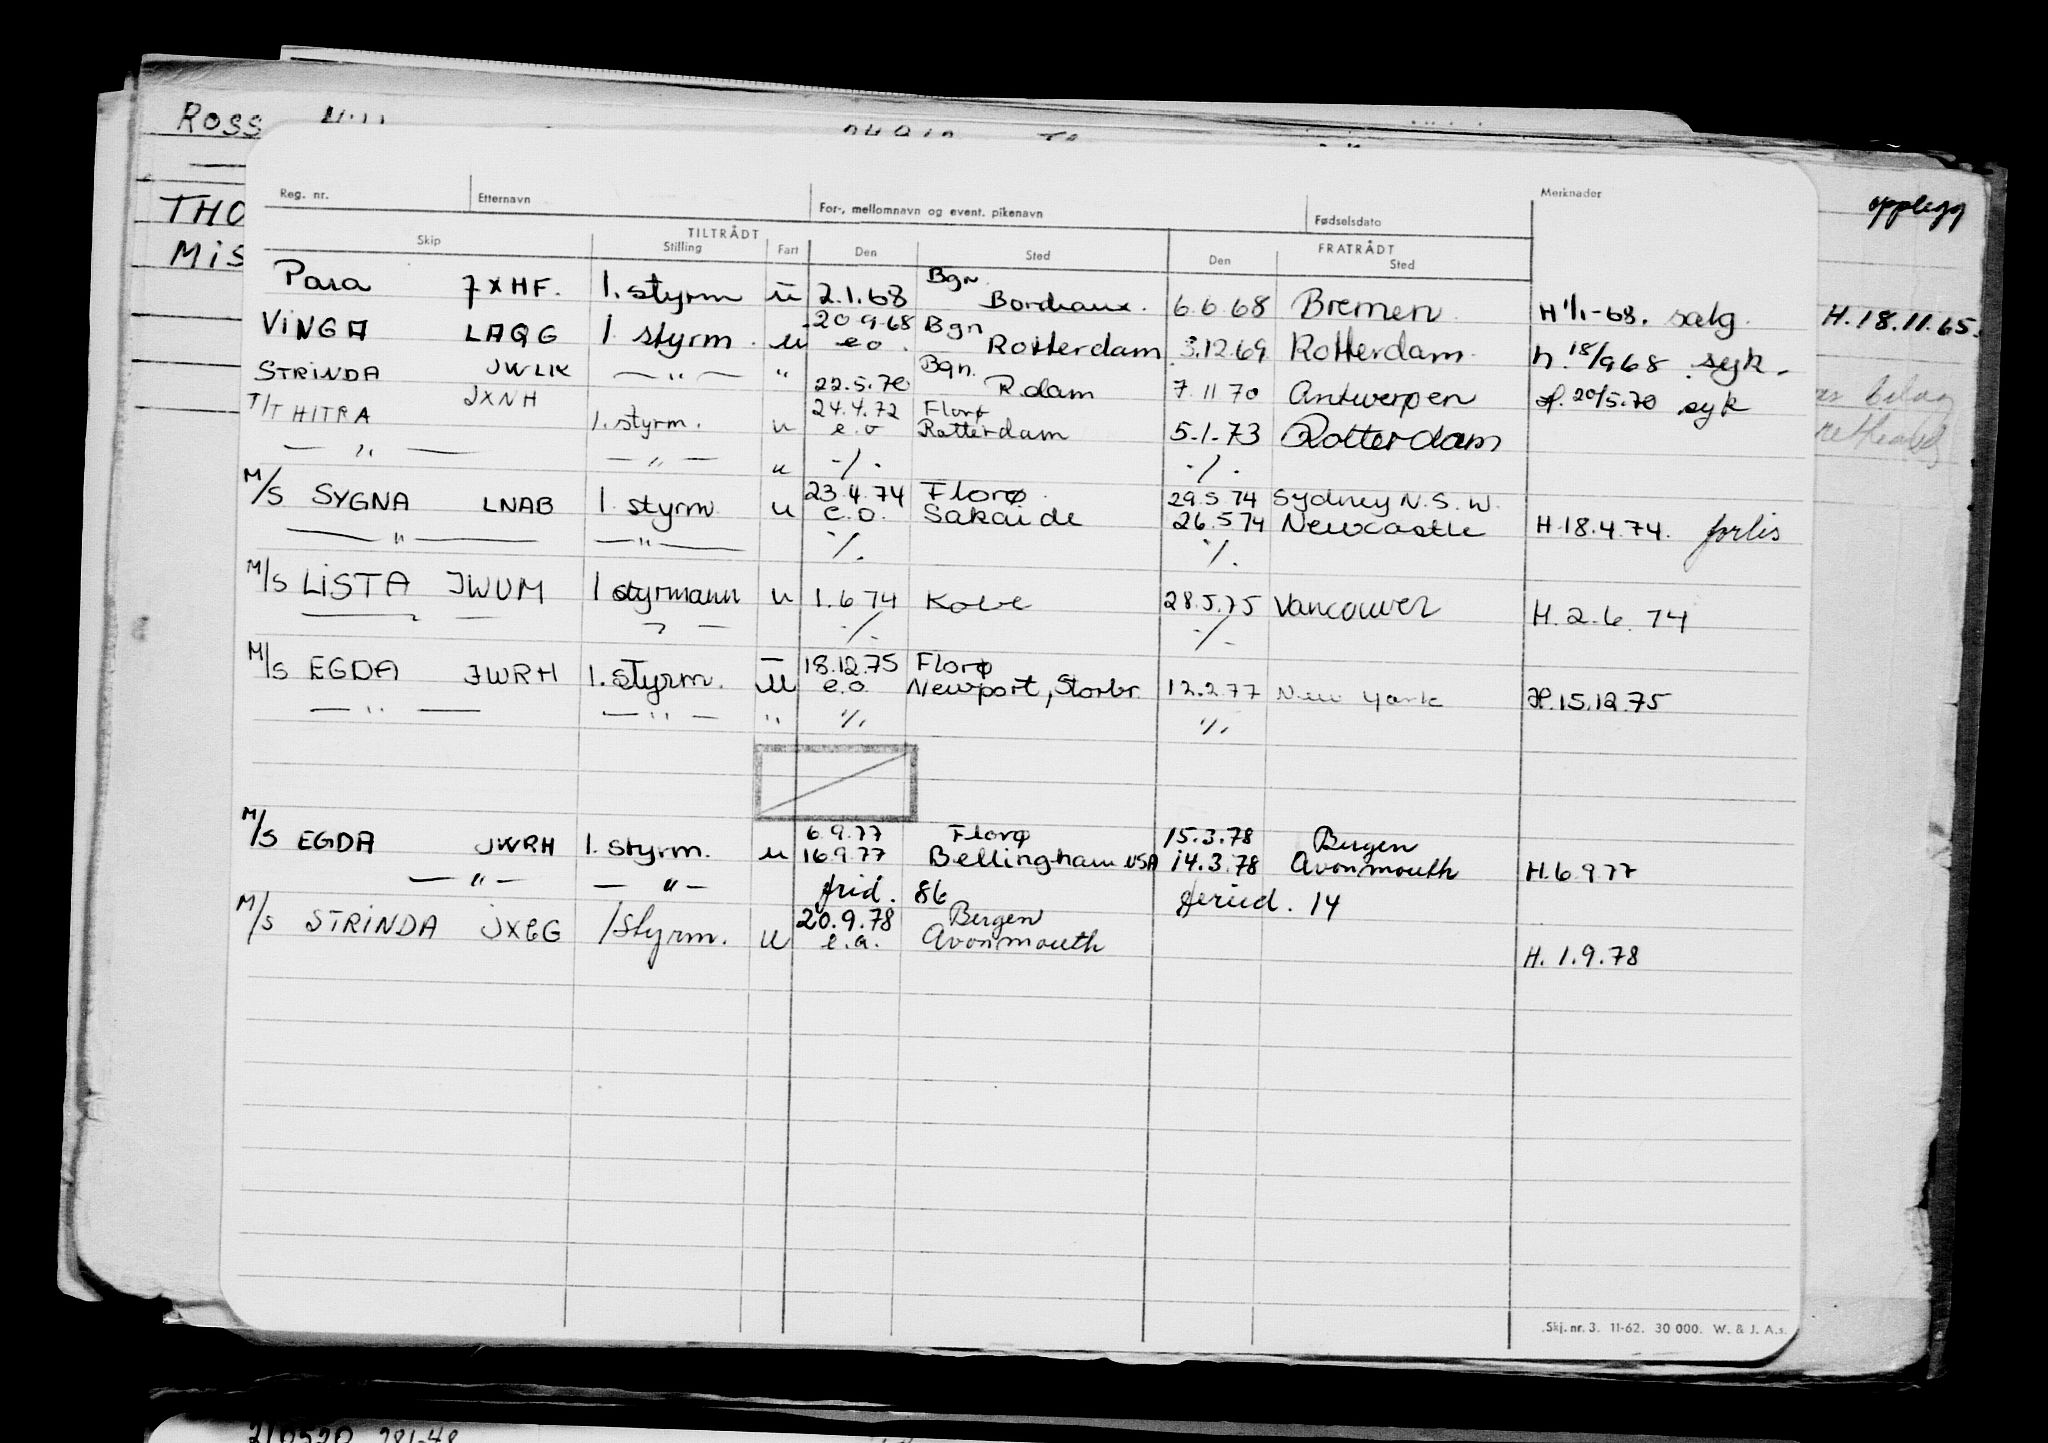 ROSS
THO
MiS
opplegg
H.18.11.65.
Reg. nr. Etternavn For-, mellomnavn og event. pikenavn Fødselsdato Merknader
TILTRÅDT FRATRÅDT
Skip Stilling Fart Den Sted Den Sted
Bgn
Para JXHF. 1. styrm u 2.1.68 Bordeaux. 6.6 68 Bremen. H 1/1-68. salg.
20 9 68 Bgn
ViNGA LAQG 1 styrm. u e o. Rotterdam 3.12.69 Rotterdam. h. 18/9 68 syk.
Bgn.
STRiNDA JWLK — " — " 22.5.70 R.dam 7 11 70 Antwerpen H. 20/5.70 syk
24.4.72 Florø
T/T HITRA JXNH 1. styrm. u e.o Rotterdam 5.1.73 Rotterdam
— " — — " — u ./. ./.
23.4.74 Florø. 29.5 74 Sydney N.S.W.
M/S SYGNA LNAB 1 styrm. u e.o. Sakaide 26.5 74 Newcastle H.18.4.74. forlis
— " — — " — ./. ./.
M/S LiSTA JWUM 1 styrmann u 1.6 74 Kobe 28.5.75 Vancouver H. 2.6. 74
— " — — " — ./. ./.
18.12.75 Florø
M/S EGDA JWRH 1. styrm. u e.o. Newport, Storbr. 12.2.77 New York H.15.12.75
— " — — " — " ./. ./.
6.9.77 Florø 15.3.78 Bergen
M/S EGDA JWRH 1. styrm. u 16.9.77 Bellingham USA 14.3.78 Avonmouth H.6 9 77
— " — — " — frid. 86 feried. 14
20.9.78 Bergen
M/S STRiNDA JXEG 1styrm. u e.a. Avonmouth
H. 1.9.78
Skj. nr. 3. 11-62. 30 000. W. & J. A.s.
210520 281-48